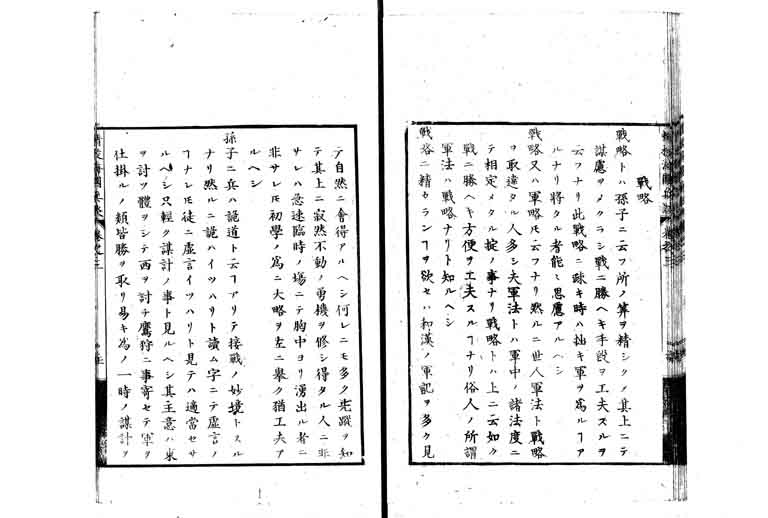 戦略
戦略トハ孫子ニ云フ所ノ算ヲ精シクノ其上ニテ
謀慮ヲメクラシ戦ニ勝ヘキ手段ヲ工夫スルヲ
云フナリ此戦略ニ疎キ時ハ拙キ軍ヲ為ルヿア
ルナリ将タル者能ミ思慮アルヘシ
戦略又ハ軍略ㇳモ云フナリ然ルニ世人軍法ト戦略
ヲ取違タル人多シ夫軍法トハ軍中ノ諸法度ニ
テ相定メタル掟ノ事ナリ戦略トハ上ニ云如ク
戦ニ勝ヘキ方便ヲ工夫スルヿナリ俗人ノ所謂
軍法ハ戦略ナリト知ルヘシ
戦略ニ精セランヿヲ欲セハ和漢ノ軍記ヲ多ク見
テ自然ニ會得アルヘシ何レニモ多ク先蹤ヲ知
テ其上ニ寂然不動ノ勇機ヲ修シ得タル人ニ非
サレハ急速臨時ノ場ニテ胸中ヨリ湧出ル者ニ
非サレㇳモ初学ノ為ニ大略ヲ左ニ挙ク猶工夫ア
ルヘシ
孫子ニ兵ハ詭道ト云ヿアリテ接戦ノ妙境トスル
ナリ然ルニ詭ハイツハリト讀ム字ニテ虚言ノ
ヿナレㇳモ徒ニ虚言イツハリト見テハ適當セサ
ルヘシ只軽ク謀計ノ事ト見ルヘシ其主意ハ東
ヲ討ツ體ヲシテ西ヲ討チ鷹狩ニ事寄セテ軍ヲ
仕掛ルノ類皆勝ヲ取リ易キ為ノ一時ノ謀計ヲ